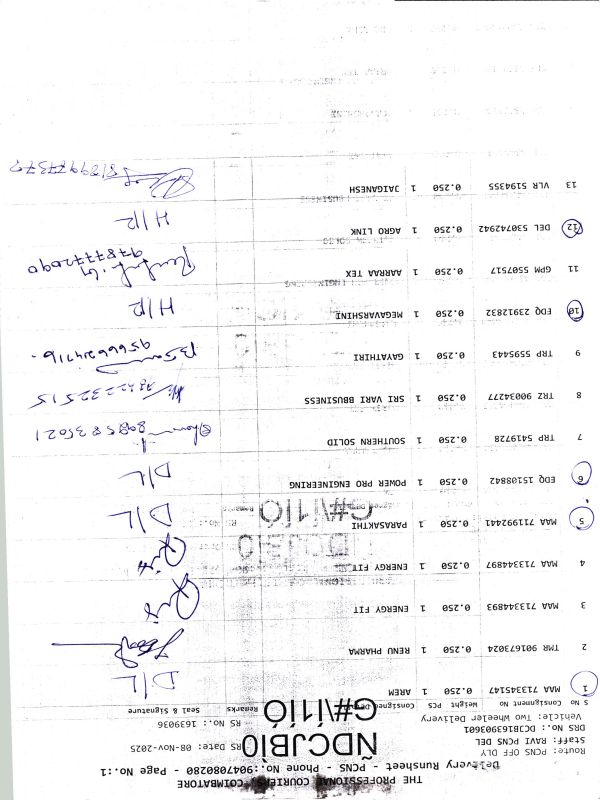 THE PROFESSIONAL COURIERS, COIMBATORE
Delivery Runsheet - PCNS - Phone No.:9047080280 - Page No.:1
Route: PCNS OFF DLY
Staff: RAVI PCNS DEL RS Date: 08-Nov-2025
DRS No: DC3816393601 RS No.: 1639036
Vehicle: Two Wheeler Delivery
ÑDCJBÌ0
G#\Í1ÍÓ
S No Consignment No Weight PCS Consignee Remarks Seal & Signature
1 MAA 713345147 0.250 1 AREM D/L
2 TMR 901673024 0.250 1 RENU PHARMA
3 MAA 713344893 0.250 1 ENERGY FIT
4 MAA 713344897 0.250 1 ENERGY FIT
5 MAA 711992441 0.250 1 PARASAKTHI D/L
6 EDQ 15103842 0.250 1 POWER PRO ENGINEERING D/L
7 TRP 5419728 0.250 1 SOUTHERN SOLID
8 TRZ 90034277 0.250 1 SRI VARI BBUSINESS
9 TRP 5595443 0.250 1 GAYATHIRI
10 EDQ 23912832 0.250 1 MEGAVARSHINI H/R
11 GPM 5507517 0.250 1 AARRAA TEX 9787772090
12 DEL 530742942 0.250 1 AGRO LINK H/R
13 VLR 5194355 0.250 1 JAIGANESH